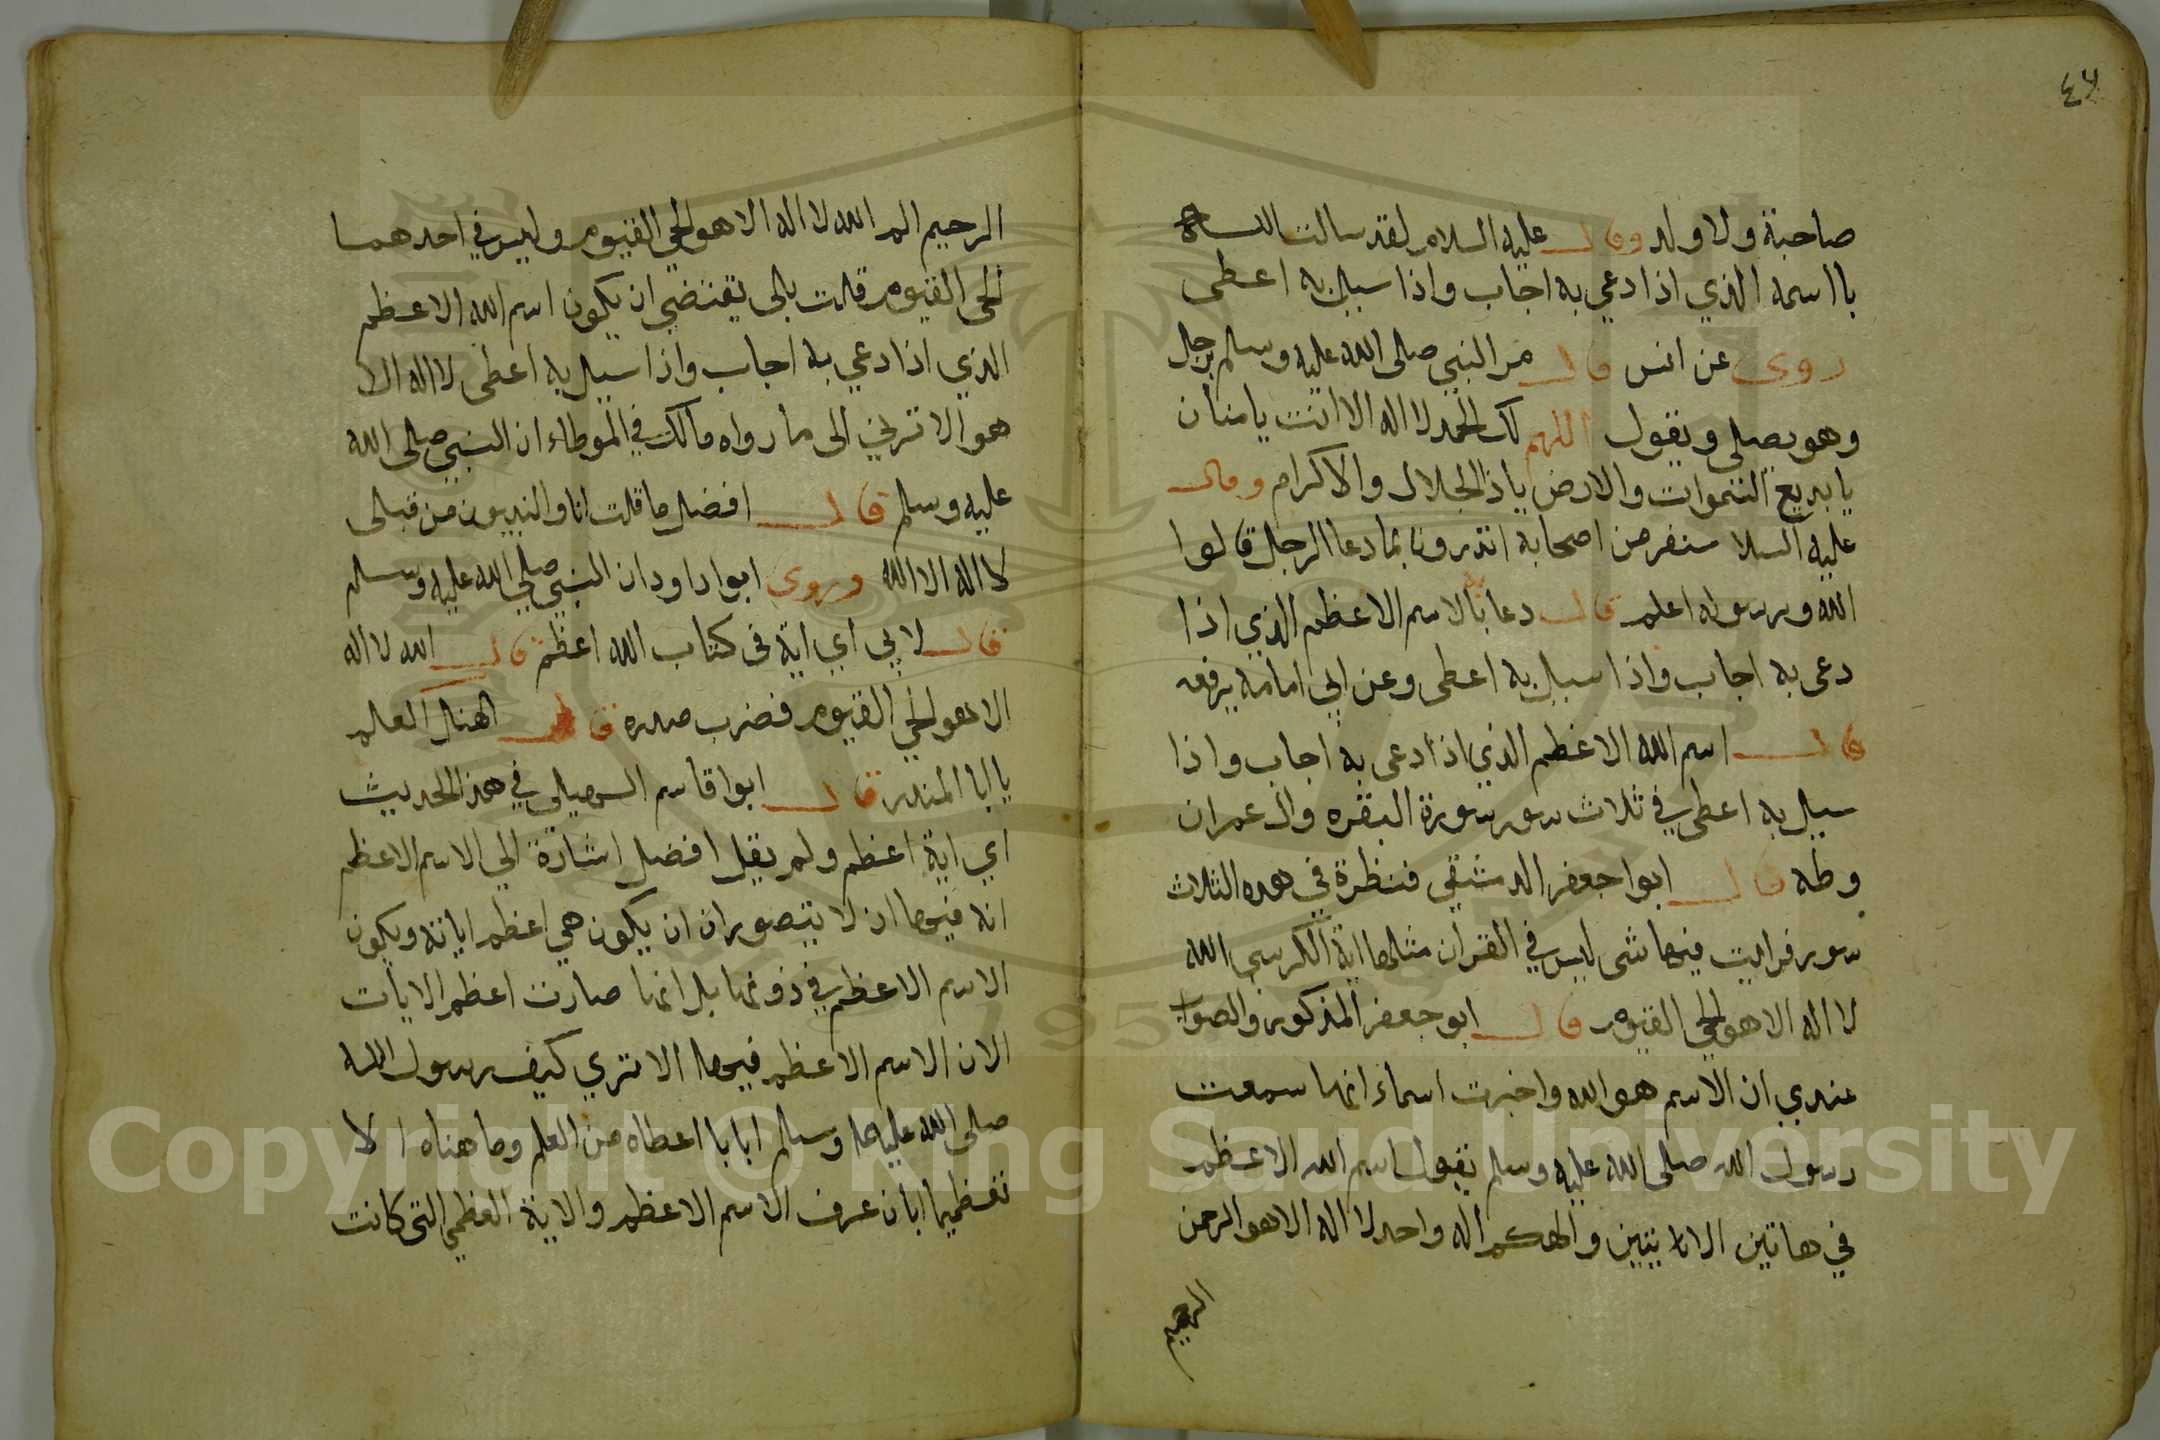 ٤٦
صاحبة ولا ولد وقال عليه السلام لقد سالت الله
بااسمه الذي اذا دعي به اجاب واذا سيل به اعطى
روى عن انس قال مر النبي صلى الله عليه وسلم برجل
وهو يصلي ويقول اللهم لك الحمد لا اله الا انت يا منان
يا بديع السموات والارض ياذالجلال والاكرام وقال
عليه السلا لنفر من اصحابه اتدرون بما دعا الرجل قالوا
الله ورسوله اعلم قال دعا به بالاسم الاعظم الذي اذا
دعى به اجاب واذا سيل به اعطى وعن ابي امامه يرفعه
قال اسم الله الاعظم الذي اذا دعى به اجاب واذا
سيل به اعطى في ثلاث سور سورة البقره وال عمران
وطه قال ابوا جعفر الدمشقي فنظرة في هده الثلاث
سور فرايت فيها شى ليس في القران مثلها اية الكرسي الله
لا اله الا هو الحي القيوم قال ابو جعفر المذكور والصواب
عندي ان الاسم هو الله واخبرت اسماء انها سمعت
رسول الله صلى الله عليه وسلم يقول اسم الله الاعظم
في هاتين الايتين والهكم اله واحد لا اله الا هو الرحمن
الرحيم
الرحيم الم الله لا اله الا هو الحي القيوم وليس في احدهما
الحى القيوم قلت بلى يقتضي ان يكون اسم الله الاعظم
الذي اذا دعي به اجاب واذا سيل به اعطى لا اله الا
هو الا ترى الى ما رواه مالك في الموطاء ان النبي صلى الله
عليه وسلم قال افضل ما قلت انا والنبيون من قبلى
لا اله الا الله وروى ابوا داود ان النبي صلى الله عليه وسلم
قال لابي اي اية في كتاب الله اعظم قال الله لا اله
الا هو الحي القيوم فضرب صدره قال لهنك العلم
يا ابا المندر قال ابوا قاسم السهيلي في هذا الحديث
اي اية اعظم ولم يقل افضل اشارة الي الاسم الاعظم
انه فيها اذ لا يتصور ان ان يكون هي اعظم اياته ويكون
الاسم الاعظم في دونها بل انها صارت اعظم الايات
الان الاسم الاعظم فيها الا تري كيف رسول الله
صلى الله عليه وسلم ابابا اعطاه من العلم وما هناه الا
تعظيما ابان عرف الاسم الاعظم والاية العظمي التى كانت
Copyright © King Saud University